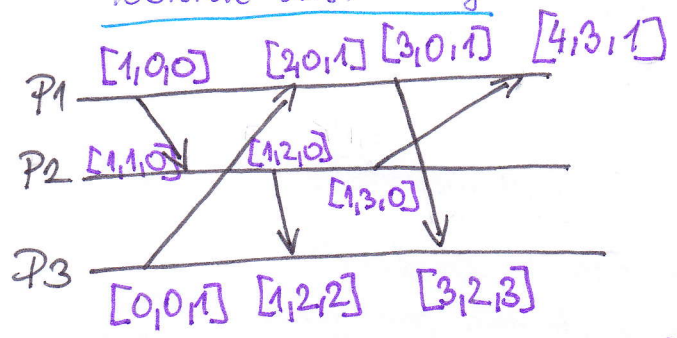 [1,0,0] [2,0,1] [3,0,1] [4,3,1]
P1
[1,1,0] [1,2,0]
P2
[1,3,0]
P3
[0,0,1] [1,2,2] [3,2,3]